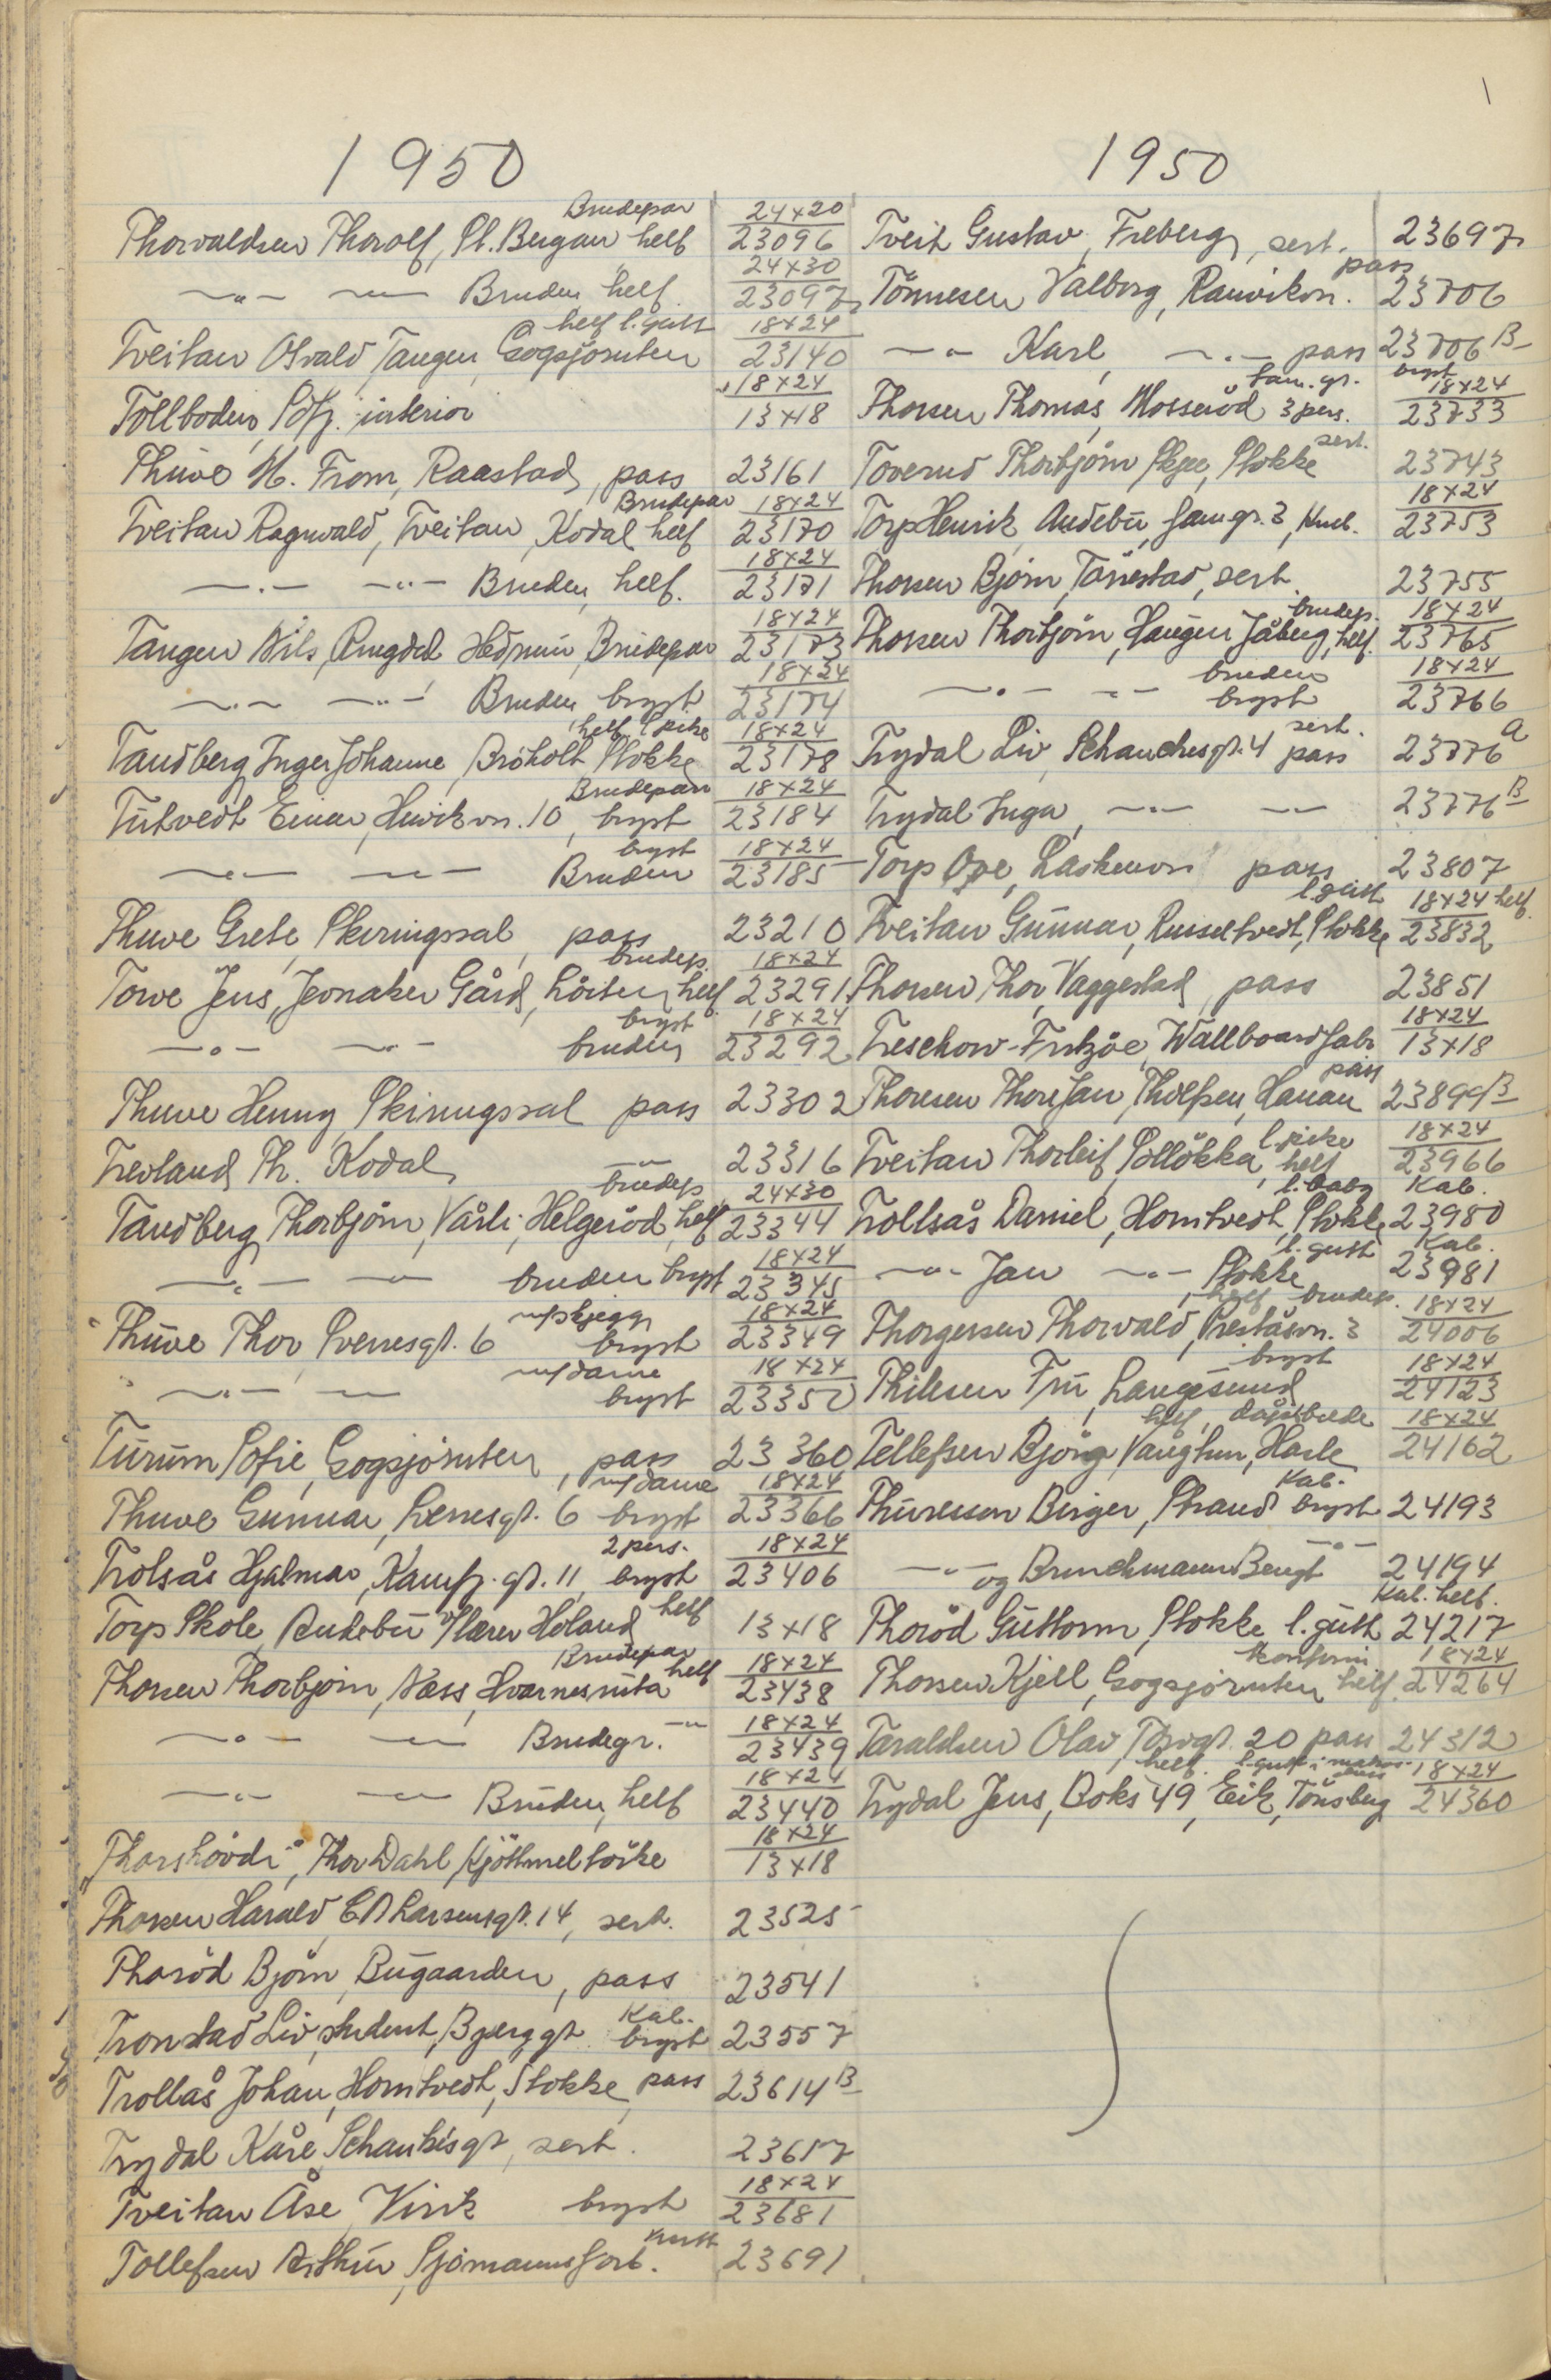 1950
Brudepar 24x20
Thorvaldsen Thorolf, St. Bergan helf 23096
24x30
—"— —"— Bruden helf. 23097
helf l. gutt 18x24
Tveitan Osvald, Tangen, Gogsjøruten 23140
18x24
Tollboden, Sdfj. interiør 13x18
Thuve M. From, Raastad, pass 23161
Brudepar 18x24
Tveitan Ragnvald, Tveitan, Kodal helf 23170
18x24
—"— —"— Bruden, helf. 23171
18x24
Tangen Nils, Ringdal, Hedrum, Brudepar 23173
18x24
—"— —"— Bruden bryst 23174
helf l. pike 18x24
Tandberg Inger Johanne, Bröholt Stokke 23178
Brudepar 18x24
Tutvedt Einar, Henrikvn. 10, bryst 23184
bryst 18x24
—"— —"— Bruden 23185
Thuve Grete, Skiringssal, pass 23210
brudep. 18x24
Towe Jens, Jevnaker Gård, Löiten, helf 23291
bryst 18x24
—"— —"— bruden 23292
Thuve Henny Skiringssal pass 23302
Trevland Th. Kodal —"— 23316
brudep 24x30
Tandberg Thorbjörn, Vårli, Helgeröd, helf 23344
18x24
—"— —"— bruden bryst 23345
m/skjegg 18x24
Thuve Thor Sverresgt. 6 bryst 23349
m/dame 18x24
—"— —"— bryst 23350
Turum Sofie, Gogsjøruten, pass 23360
m/dame 18x24
Thuve Gunnar, Sverresgt. 6 bryst 23366
2 pers. 18x24
Trolsås Hjalmar, Kampj. gt. 11, bryst 23406
Torp Skole, Andebu v/lærer Holand helf 13x18
Brudepar 18x24
Thorsen Thorbjørn, Næss, Hvarnesruta helf 23438
18x24
—"— —"— Brudegr. —"— 23439
18x24
—"— —"— Bruden, helf 23440
18x24
"Thorshövdi", Thor Dahl, Kjöttmeltörke 13x18
Thorsen Harald, C A Larsensgt. 14, sert. 23525
Thoröd Björn, Bugaarden, pass 23541
Kab.
Tronstad Liv, student, Bjerggt. bryst 23557
Trollås Johan, Homtvedt, Stokke, pass 23614 B
Trydal Kåre, Schanksgt, sert. 23617
18x24
Tveitan Åse, Virik bryst 23681
knutt
Tollefsen Arthur, Sjömannsforb. 23691
1950
Tveit Gustav, Freberg, sert. 23697
pass
Tönnesen Valborg, Ranvikvn. 23706
—"— Karl, —"— pass 23706 B
fam. gr. bryst 18x24
Thorsen Thomas, Mosseröd 3 pers. 23733
sert.
Toverud Thorbjörn Skjee, Stokke 23743
18x24
Torp Henrik, Andebu, fam gr. 3, kneb. 23753
Thorsen Bjørn, Tånestad, sert. 23755
brudep. 18x24
Thorsen Thorbjörn, Haugen Jåberg, helf. 23765
bruden 18x24
—"— —"— bryst 23766
sert.
Trydal Liv, Schanchesgt. 4 pass 23776 a
Trydal Inga, —"— —"— 23776 B
Torp Ope, Laskenvn pass 23807
l. gutt 18x24 helf
Tveitan Gunnar, Russeltvedt, Stokke 23832
Thorsen Thor, Vaggestad, pass 23851
18x24
Treschow-Fritzöe, Wallboardfabr 13x18
pass
Thoresen Thore Jan, Tholfsen, Hanan 23899 B
l. pike 18x24
Tveitan Thorleif, Solløkka, helf 23966
l. baby Kab.
Trollsås Daniel, Homtvedt, Stokke 23980
l. gutt Kab.
—"— Jan —"— Stokke 23981
helf brudep. 18x24
Thorgersen Thorvald, Preståsvn. 3 24006
bryst 18x24
Thilesen Fru, Langesund 24123
helf, dåpsbilde 18x24
Tellefsen Bjørg, Vaughun, Hasle 24162
Kab.
Thuresson Birger, Strand bryst 24193
—"— og Brinchmann Bengt —"— 24194
Kab. helf.
Thoröd Guttorm, Stokke l. gutt 24217
Konfirm 18x24
Thorsen Kjell, Gogsjøruten helf. 24264
Taraldsen Olav, Torvgt. 20 pass 24312
helf. l. gutt i matros- dress 18x24
Trydal Jens, Boks 49, Eik, Tönsberg 24360